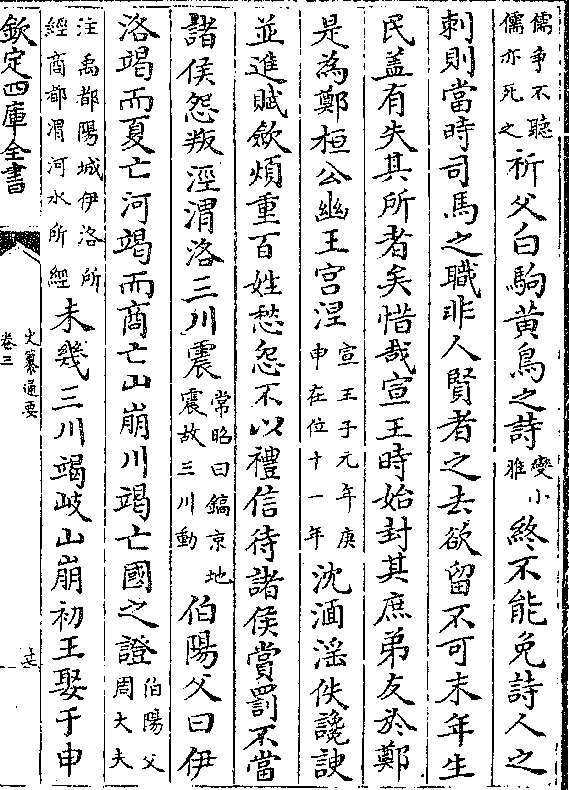 儒争不聽儒亦死之祈父白駒黄鳥之詩變小雅終不能免詩人之
刺則當時司馬之職非人賢者之去欲留不可末年生
民盖有失其所者矣惜哉宣王時始封其庶弟友於鄭
是為鄭桓公幽王宫涅宣王子元年庚申在位十一年沈湎滛佚讒諛
並進賦歛煩重百姓愁怨不以禮信待諸侯賞罰不當
諸侯怨叛涇渭洛三川震常昭曰鎬京地震故三川動伯陽父曰伊
洛竭而夏亡河竭而商亡山崩川竭亡國之證伯陽父周大夫
注禹都陽城伊洛所經商都渭河水所經未幾三川竭岐山崩初王娶于申
欽定四庫全書
史纂通要
卷三